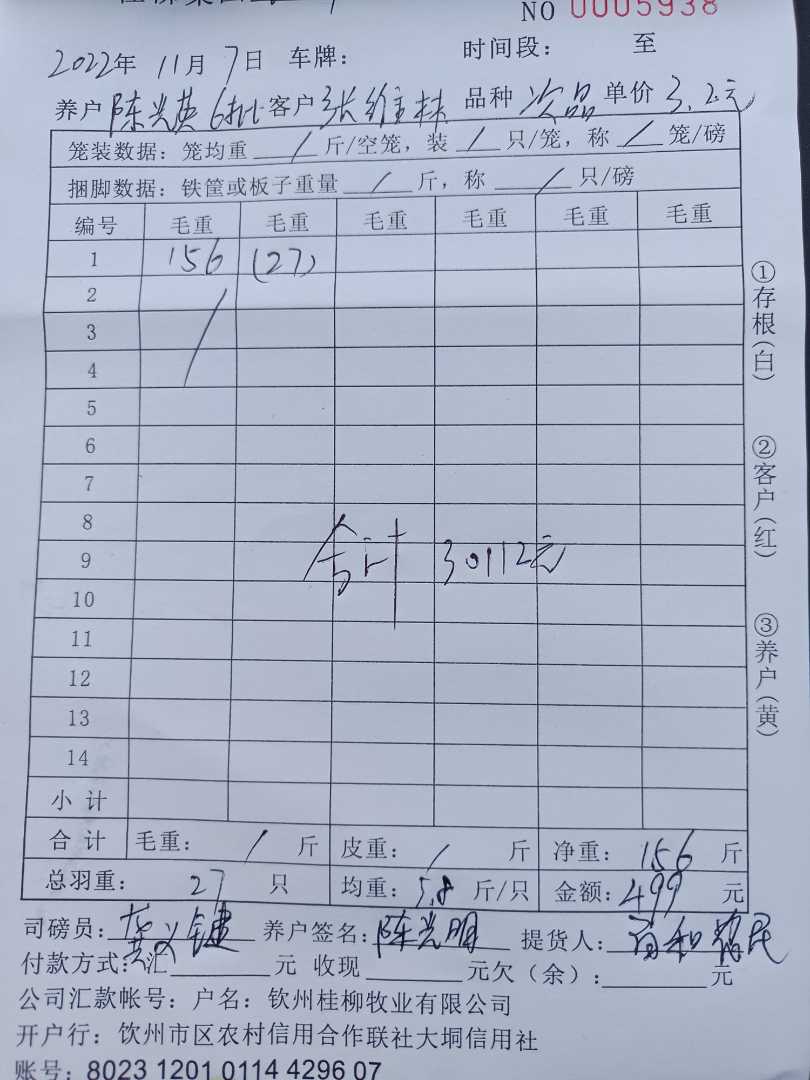 NO 0005938
2022年 11月 7日 车牌: 时间段: 至
养户 陈光英 6批 客户 张维林 品种 次品 单价 3.2元
笼装数据: 笼均重 / 斤/空笼, 装 / 只/笼, 称 / 笼/磅
捆脚数据: 铁筐或板子重量 / 斤, 称 / 只/磅
编号 毛重 毛重 毛重 毛重 毛重 毛重
1 156 (27)
2
3
4
5
6
7
8
9
合计 30112元
10
11
12
13
14
小计
合计 毛重: / 斤 皮重: / 斤 净重: 156 斤
总羽重: 27 只 均重: 5.8 斤/只 金额: 499 元
①存根(白)
②客户(红)
③养户(黄)
司磅员: 养户签名: 陈光明 提货人:
付款方式: 汇 元 收现 元欠(余): 元
公司汇款帐号: 户名: 钦州桂柳牧业有限公司
开户行: 饮州市区农村信用合作联社大垌信用社
账号: 8023 1201 0114 4296 07